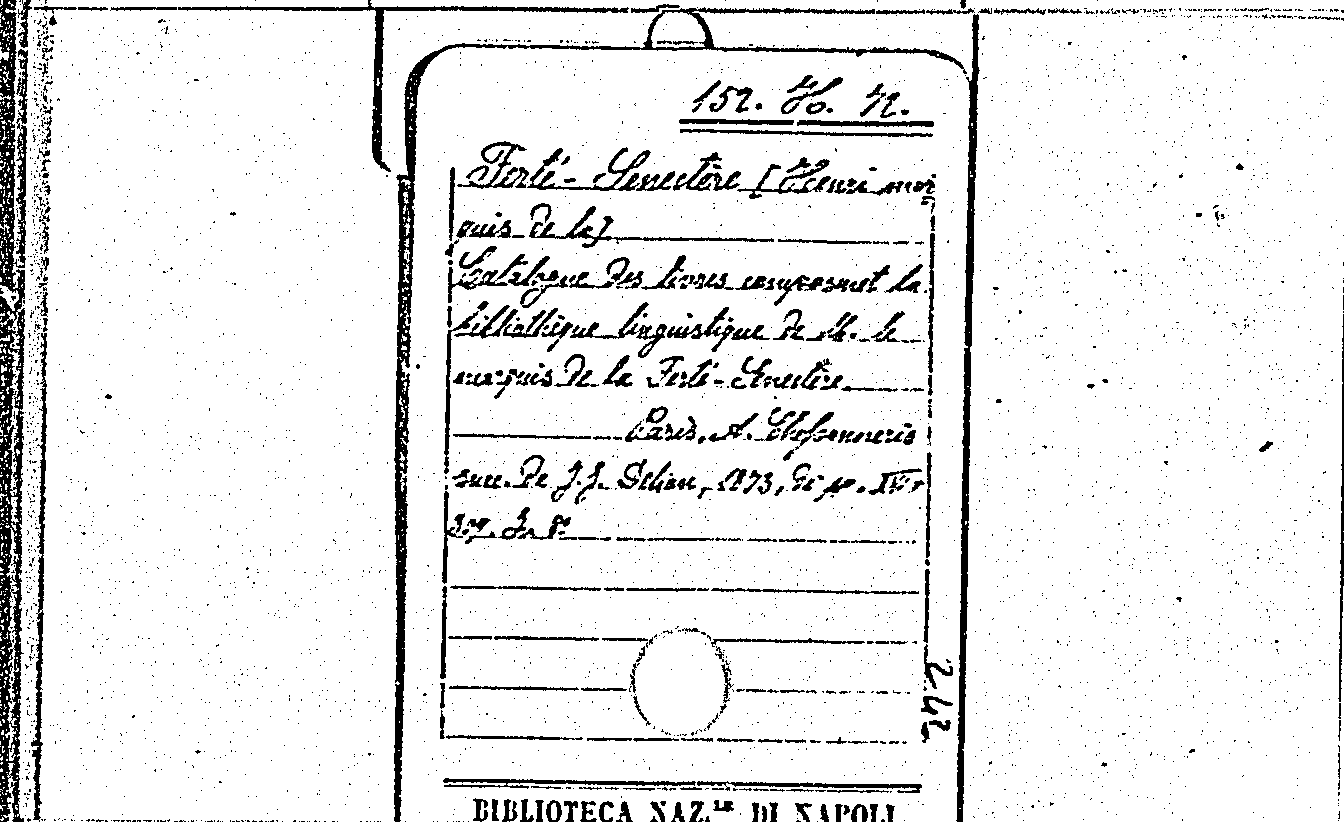 152. H. 12.
Ferté-Senectère [Henri mar
quis de la]
Catalogue des livres composant la
bibliothèque linguistique de M. le
marquis de la Ferté-Senectère
Paris, A. Chossonnerie
succ. de J.J. Delion, 1873, di pp. IV,
In 8°
242
BIBLIOTECA NAZ.LE DI NAPOLI